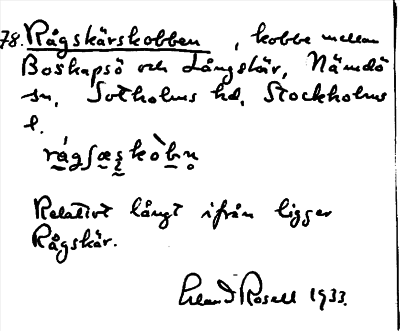 78. Rågskärskobben, kobbe mellan
Boskapsö och Långskär, Nämdö
sn, Sotholms hd, Stockholms
l.
rágʃæʂkòbn̥
Relativt långt ifrån ligger
Rågskär.
Erland Rosell 1933.